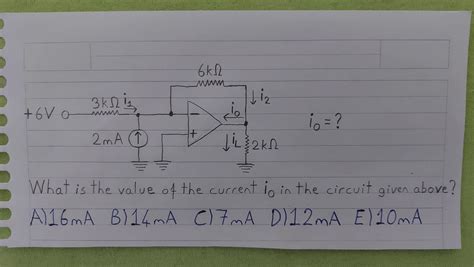 6kΩ
+6V 3kΩ i₁ − i₀ i₂ i₀=?
2mA + iL 2kΩ
What is the value of the current i₀ in the circuit given above?
A)16mA B)14mA C)7mA D)12mA E)10mA